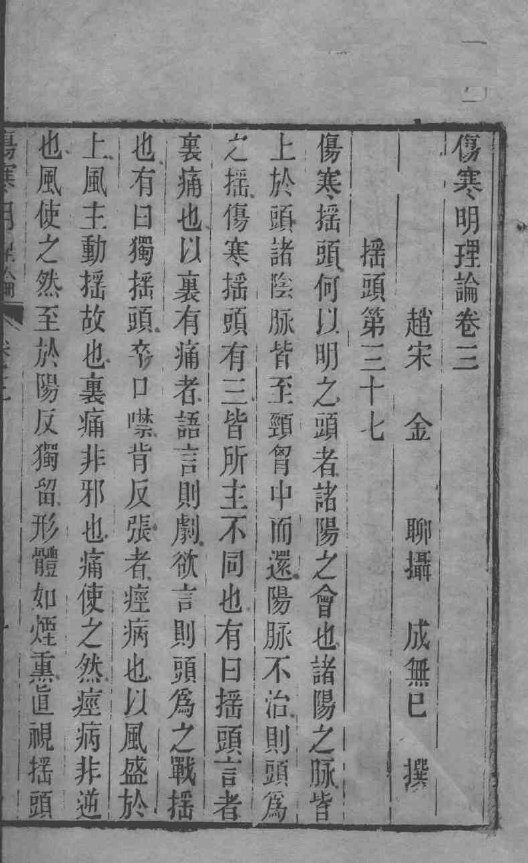 傷寒明理論卷三
趙宋 金 聊攝 成無已 撰
揺頭第三十七
傷寒揺頭何以明之頭者諸陽之會也諸陽之脉皆
上於頭諸陰脉皆至頸胷中而還陽脉不治則頭爲
之揺傷寒揺頭有三皆所主不同也有曰揺頭言者
裏痛也以裏有痛者語言則劇欲言則頭爲之戰揺
也有曰獨揺頭卒口噤背反張者痙病也以風盛於
上風主動揺故也裏痛非邪也痛使之然痙病非逆
也風使之然至於陽反獨留形體如煙熏直視揺頭
傷寒明理論 卷三